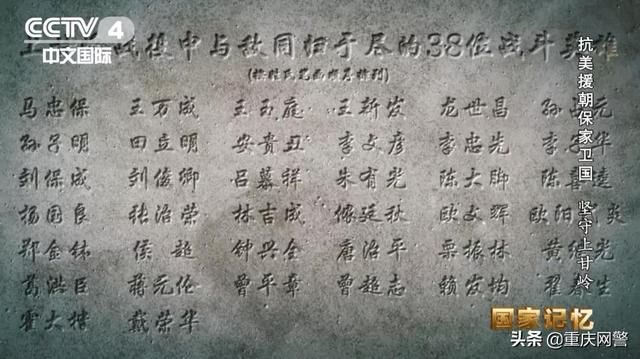 CCTV 4
中文国际
上甘岭战役中与敌同归于尽的38位战斗英雄
(按姓氏笔画顺序排列)
马忠保 王万成 王玉庭 王新发 龙世昌 孙 元
孙子明 田立明 安贵丑 李文彦 李忠先 李 华
刘保成 刘俊卿 吕慕祥 朱有光 陈大脚 陈 远
杨国良 张治荣 林吉成 侯廷秋 欧文辉 欧阳 炎
郑金钵 侯超 钟兴全 唐治平 栗振林 黄继光
葛洪臣 蒋元伦 曾平章 曾超志 赖发均 翟 生
霍大楷 戴荣华
抗美援朝保家卫国 坚守上甘岭
国家记忆
头条@重庆网警